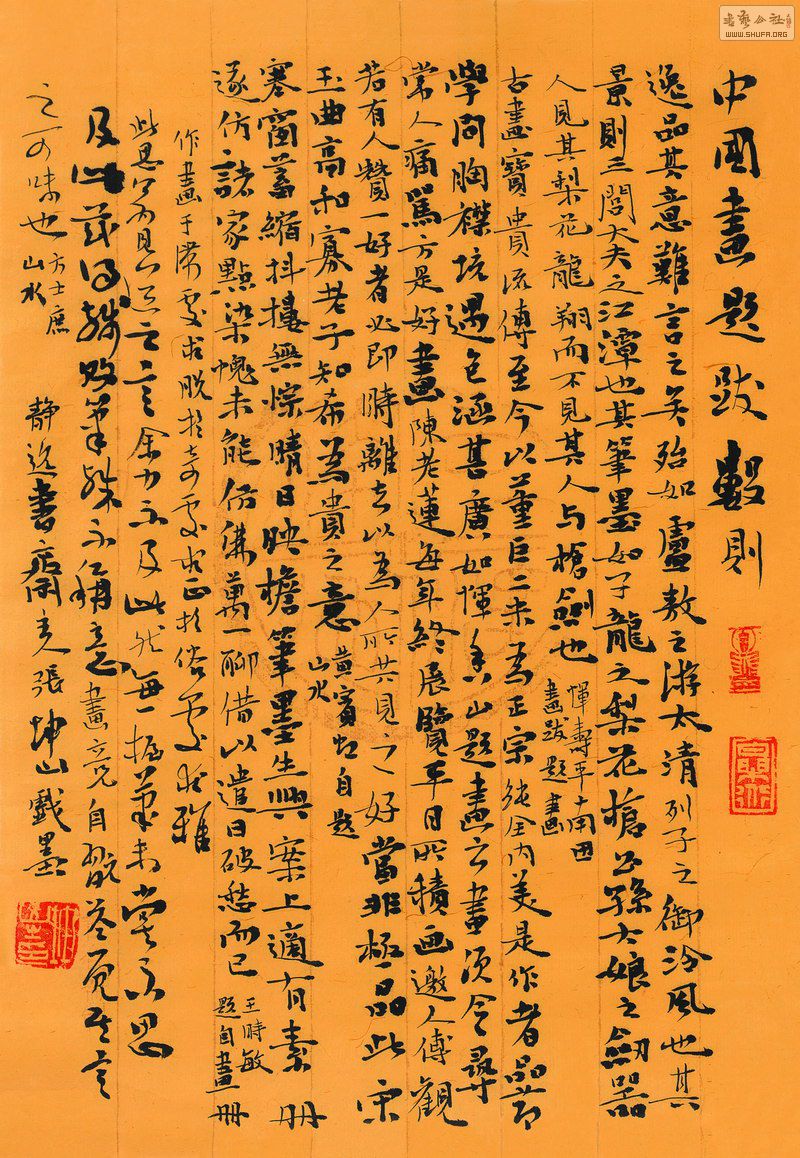 中國畫題跋數則
逸品其意難言之矣殆如盧敖之游太清列子之御泠風也其
景則三閭大夫之江潭也其筆墨如子龍之梨花槍公孫大娘之劍器
人見其梨花龍翔而不見其人與槍劍也
惲壽平南田
畫跋題畫
古畫寶貴流傳至今以董巨二米為正宗純全內美是作者品節
學問胸襟境遇包涵甚廣如惲香山題畫云畫須令尋
常人痛罵方是好畫陳老蓮每年終展覽平日所積畫邀人傳觀
若有人贊一好者必即時離去以為人所共見之好當非極品此宋
玉曲高和寡老子知希為貴之意
黃賓虹自題
山水
寒窗蓄縮抖擻無悰晴日映檐筆墨生興案上適有素冊
遂仿諸家點染愧未能仿佛萬一聊借以遣日破愁而已
王時敏
題自畫冊
作畫于濃處求脫於奇處求正於俗處求雅
此思翁見道之言余力不及此然每一握筆未嘗不思
及此茲得殘敗筆殊不稱意畫竟自
之可味也
方士庶
山水
靜逸書齋主張坤山戲墨
書藝公社
WWW.SHUFA.ORG